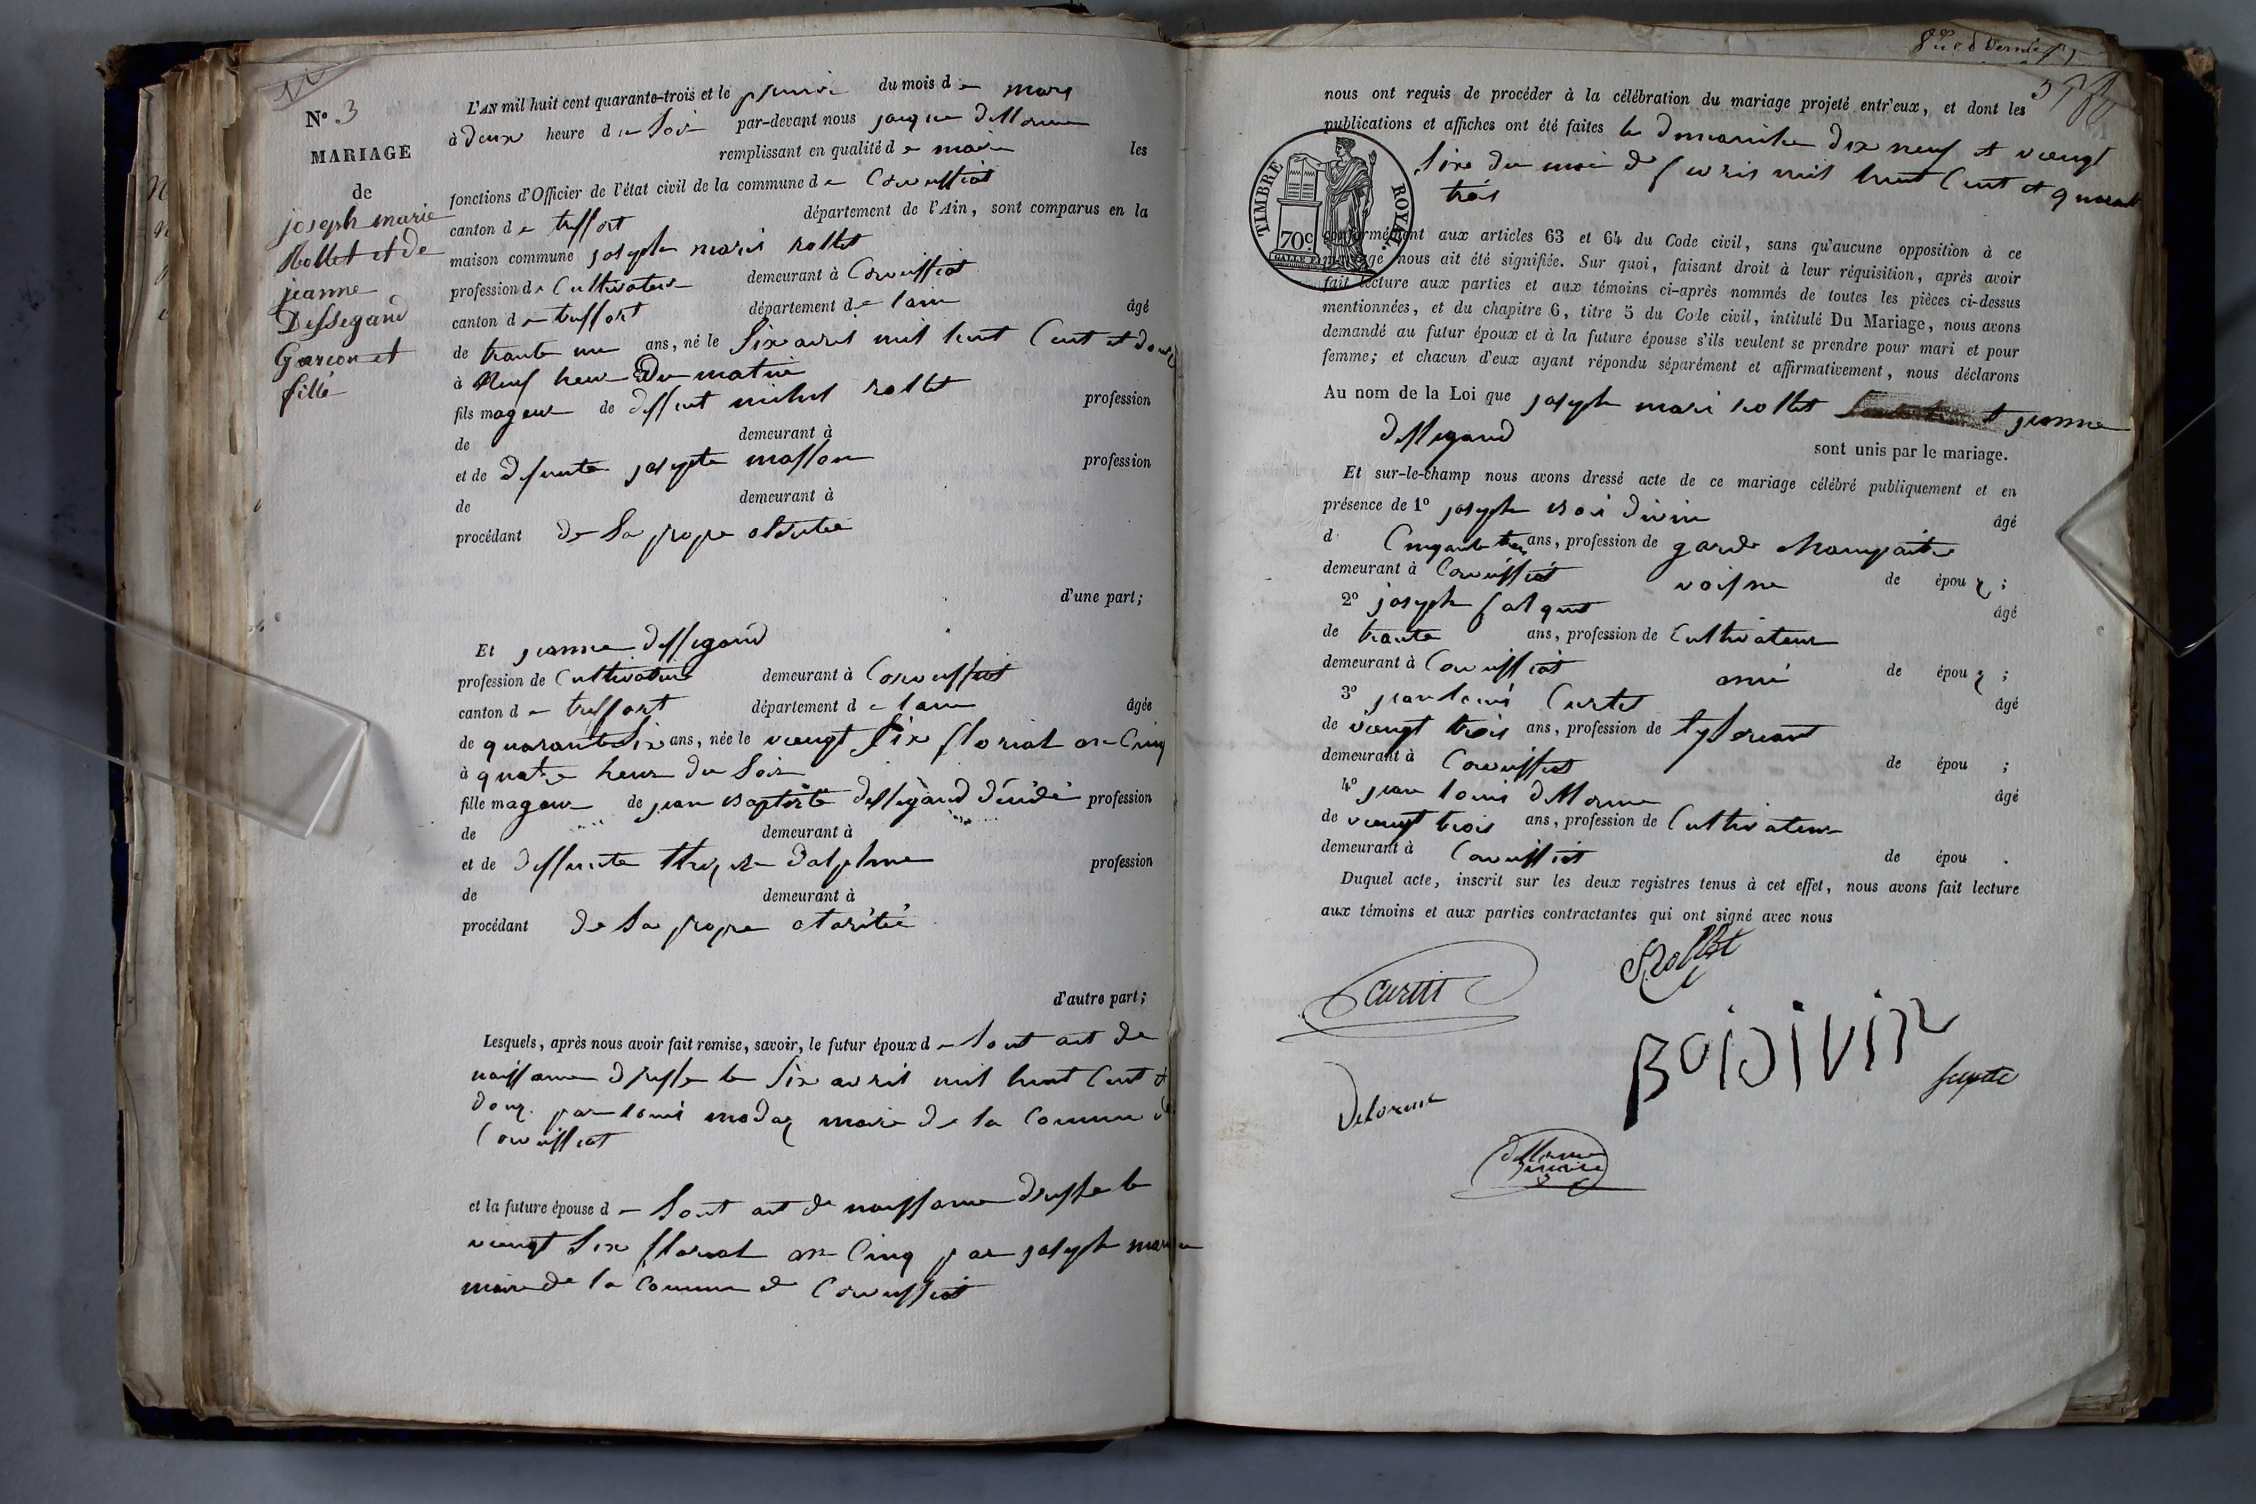 N° 3
MARIAGE
de
joseph marie
Rollet et de
jeanne
Dessegand
Garcon et
fille
L'AN mil huit cent quarante-trois et le premié du mois de mars
à deux heure du Soir par-devant nous jacque dellorme
remplissant en qualité de maire les
fonctions d'Officier de l'état civil de la commune de Corveissiat
canton de treffort département de l'Ain, sont comparus en la
maison commune joseph marie rollet
profession de Cultivateur demeurant à Corveissiat
canton de treffort département de lain âgé
de trante un ans, né le Six avril mil huit Cent et douze
à Neuf heur Du matin
fils mageur de deffunt michel rollet profession
de demeurant à
et de defunte josepte masson profession
de demeurant à
procédant de Sa propre
d'une part;
Et jeanne dessegand
profession de Cultivatrice demeurant à Corveissiat
canton de treffort département de lain âgée
de quarante Six ans, née le vengt Six florial an Cinq
à quatre heur du Soir
fille mageur de jean baptiste dessegand profession
de demeurant à
et de deffunte dalphine profession
de demeurant à
procédant de Sa propre otorité
d'autre part;
Lesquels, après nous avoir fait remise, savoir, le futur époux de Sont act de
naissance dresse le Six avril mil huit Cent et
douz par louis maire de la Commune de
Corveissiat
et la future épouse de Sont act de naissance dresse le
vengt Six florial an Cinq par joseph
maire de la Commune de Corveissiat
nous ont requis de procéder à la célébration du mariage projeté entr'eux, et dont les
publications et affiches ont été faites le dimanche dix neuf et vengt
Six du moi de fevris mil huit Cent et quarante
trois
TIMBRE ROYAL.
70c.
conformément aux articles 63 et 64 du Code civil, sans qu'aucune opposition à ce
mariage nous ait été signifiée. Sur quoi, faisant droit à leur réquisition, après avoir
fait lecture aux parties et aux témoins ci-après nommés de toutes les pièces ci-dessus
mentionnées, et du chapitre 6, titre 5 du Code civil, intitulé Du Mariage, nous avons
demandé au futur époux et à la future épouse s'ils veulent se prendre pour mari et pour
femme; et chacun d'eux ayant répondu séparément et affirmativement, nous déclarons
Au nom de la Loi que joseph mari rollet et jeanne
dessegand
sont unis par le mariage.
Et sur-le-champ nous avons dressé acte de ce mariage célébré publiquement et en
présence de 1° joseph boi divin âgé
d Cinquante trois ans, profession de garde champaitre
demeurant à Corveissiat voisine de épouz ;
2° joseph falquet âgé
de trante ans, profession de Cultivateur
demeurant à Corveissiat ami de épouz ;
3° jean louis Curtet âgé
de vengt trois ans, profession de tyserant
demeurant à Corveissiat de épou ;
4° jean louis dellorme âgé
de vengt trois ans, profession de Cultivateur
demeurant à Corveissiat de épou .
Duquel acte, inscrit sur les deux registres tenus à cet effet, nous avons fait lecture
aux témoins et aux parties contractantes qui ont signé avec nous
Rollet
curtet
BOIDIVIN
Delorme
dellorme
maire